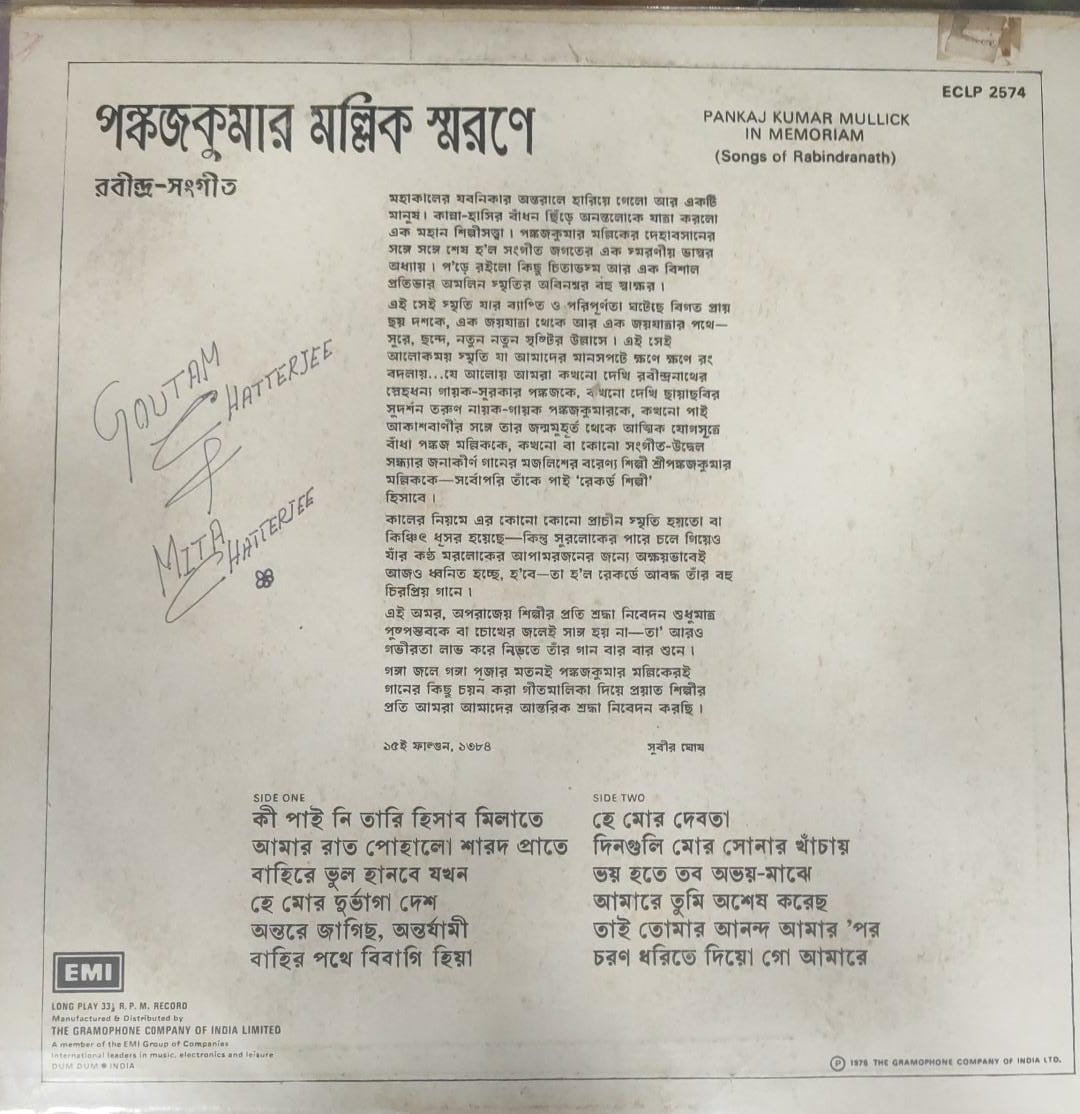 ECLP 2574
পঙ্কজকুমার মল্লিক স্মরণে
রবীন্দ্র-সংগীত
PANKAJ KUMAR MULLICK
IN MEMORIAM
(Songs of Rabindranath)
মহাকালের যবনিকার অন্তরালে হারিয়ে গেলো আর একটি
মানুষ। কান্না-হাসির বাঁধন ছিঁড়ে অনন্তলোকে যাত্রা করলো
এক মহান শিল্পীসত্ত্বা। পঙ্কজকুমার মল্লিকের দেহাবসানের
সঙ্গে সঙ্গে শেষ হ'ল সংগীত জগতের এক স্মরণীয় ভাস্বর
অধ্যায়। প'ড়ে রইলো কিছু চিতাভস্ম আর এক বিশাল
প্রতিভার অমলিন স্মৃতির অবিনশ্বর বহু স্বাক্ষর।
এই সেই স্মৃতি যার ব্যাপ্তি ও পরিপূর্ণতা ঘটেছে বিগত প্রায়
ছয় দশকে, এক জয়যাত্রা থেকে আর এক জয়যাত্রার পথে—
সুরে, ছন্দে, নতুন নতুন সৃষ্টির উল্লাসে। এই সেই
আলোকময় স্মৃতি যা আমাদের মানসপটে ক্ষণে ক্ষণে রং
বদলায়...যে আলোয় আমরা কখনো দেখি রবীন্দ্রনাথের
স্নেহধন্য গায়ক-সুরকার পঙ্কজকে, কখনো দেখি ছায়াছবির
সুদর্শন তরুণ নায়ক-গায়ক পঙ্কজকুমারকে, কখনো পাই
আকাশবাণীর সঙ্গে তার জন্মমুহূর্ত থেকে আত্মিক যোগসূত্রে
বাঁধা পঙ্কজ মল্লিককে, কখনো বা কোনো সংগীত-উদ্বেল
সন্ধ্যার জনাকীর্ণ গানের মজলিশের বরেণ্য শিল্পী শ্রীপঙ্কজকুমার
মল্লিককে—সর্বোপরি তাঁকে পাই 'রেকর্ড শিল্পী'
হিসাবে।
কালের নিয়মে এর কোনো কোনো প্রাচীন স্মৃতি হয়তো বা
কিঞ্চিৎ ধূসর হয়েছে—কিন্তু সুরলোকের পারে চলে গিয়েও
যাঁর কণ্ঠ মরলোকের আপামরজনের জন্যে অক্ষয়ভাবেই
আজও ধ্বনিত হচ্ছে, হ'বে—তা হ'ল রেকর্ডে আবদ্ধ তাঁর বহু
চিরপ্রিয় গানে।
এই অমর, অপরাজেয় শিল্পীর প্রতি শ্রদ্ধা নিবেদন শুধুমাত্র
পুষ্পস্তবকে বা চোখের জলেই সাঙ্গ হয় না—তা' আরও
গভীরতা লাভ করে নিভৃতে তাঁর গান বার বার শুনে।
গঙ্গা জলে গঙ্গা পূজার মতনই পঙ্কজকুমার মল্লিকেরই
গানের কিছু চয়ন করা গীতমালিকা দিয়ে প্রয়াত শিল্পীর
প্রতি আমরা আমাদের আন্তরিক শ্রদ্ধা নিবেদন করছি।
১৫ই ফাল্গুন, ১৩৮৪ সুবীর ঘোষ
GOUTAM
CHATTERJEE
&
MITA
CHATTERJEE
SIDE ONE
কী পাই নি তারি হিসাব মিলাতে
আমার রাত পোহালো শারদ প্রাতে
বাহিরে ভুল হানবে যখন
হে মোর দুর্ভাগা দেশ
অন্তরে জাগিছ, অন্তর্যামী
বাহির পথে বিবাগি হিয়া
SIDE TWO
হে মোর দেবতা
দিনগুলি মোর সোনার খাঁচায়
ভয় হতে তব অভয়-মাঝে
আমারে তুমি অশেষ করেছ
তাই তোমার আনন্দ আমার 'পর
চরণ ধরিতে দিয়ো গো আমারে
EMI
LONG PLAY 33⅓ R. P. M. RECORD
Manufactured & Distributed by
THE GRAMOPHONE COMPANY OF INDIA LIMITED
A member of the EMI Group of Companies
International leaders in music, electronics and leisure
DUM DUM ● INDIA
Ⓟ 1978 THE GRAMOPHONE COMPANY OF INDIA LTD.